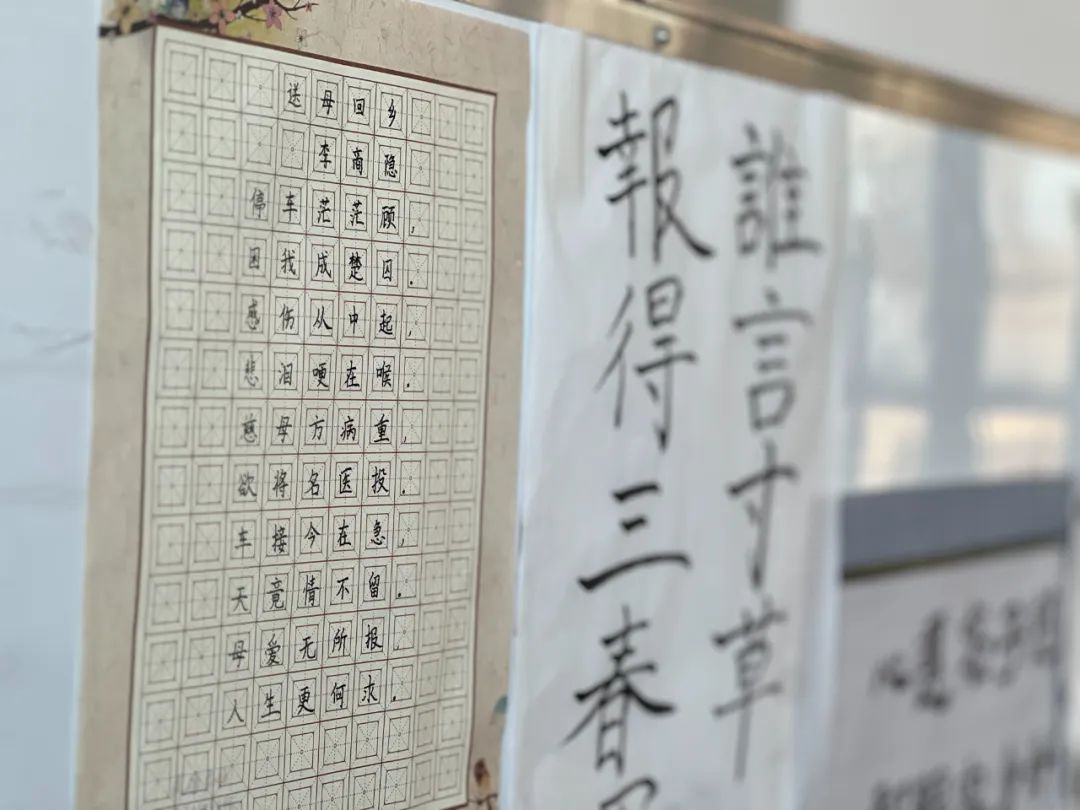 送母回乡
李商隐
停车茫茫顾,
困我成楚囚.
感伤从中起,
悲泪哽在喉.
慈母方病重,
欲将名医投.
车接今在急,
天竟情不留.
母爱无所报,
人生更何求.
誰言寸草
報得三春